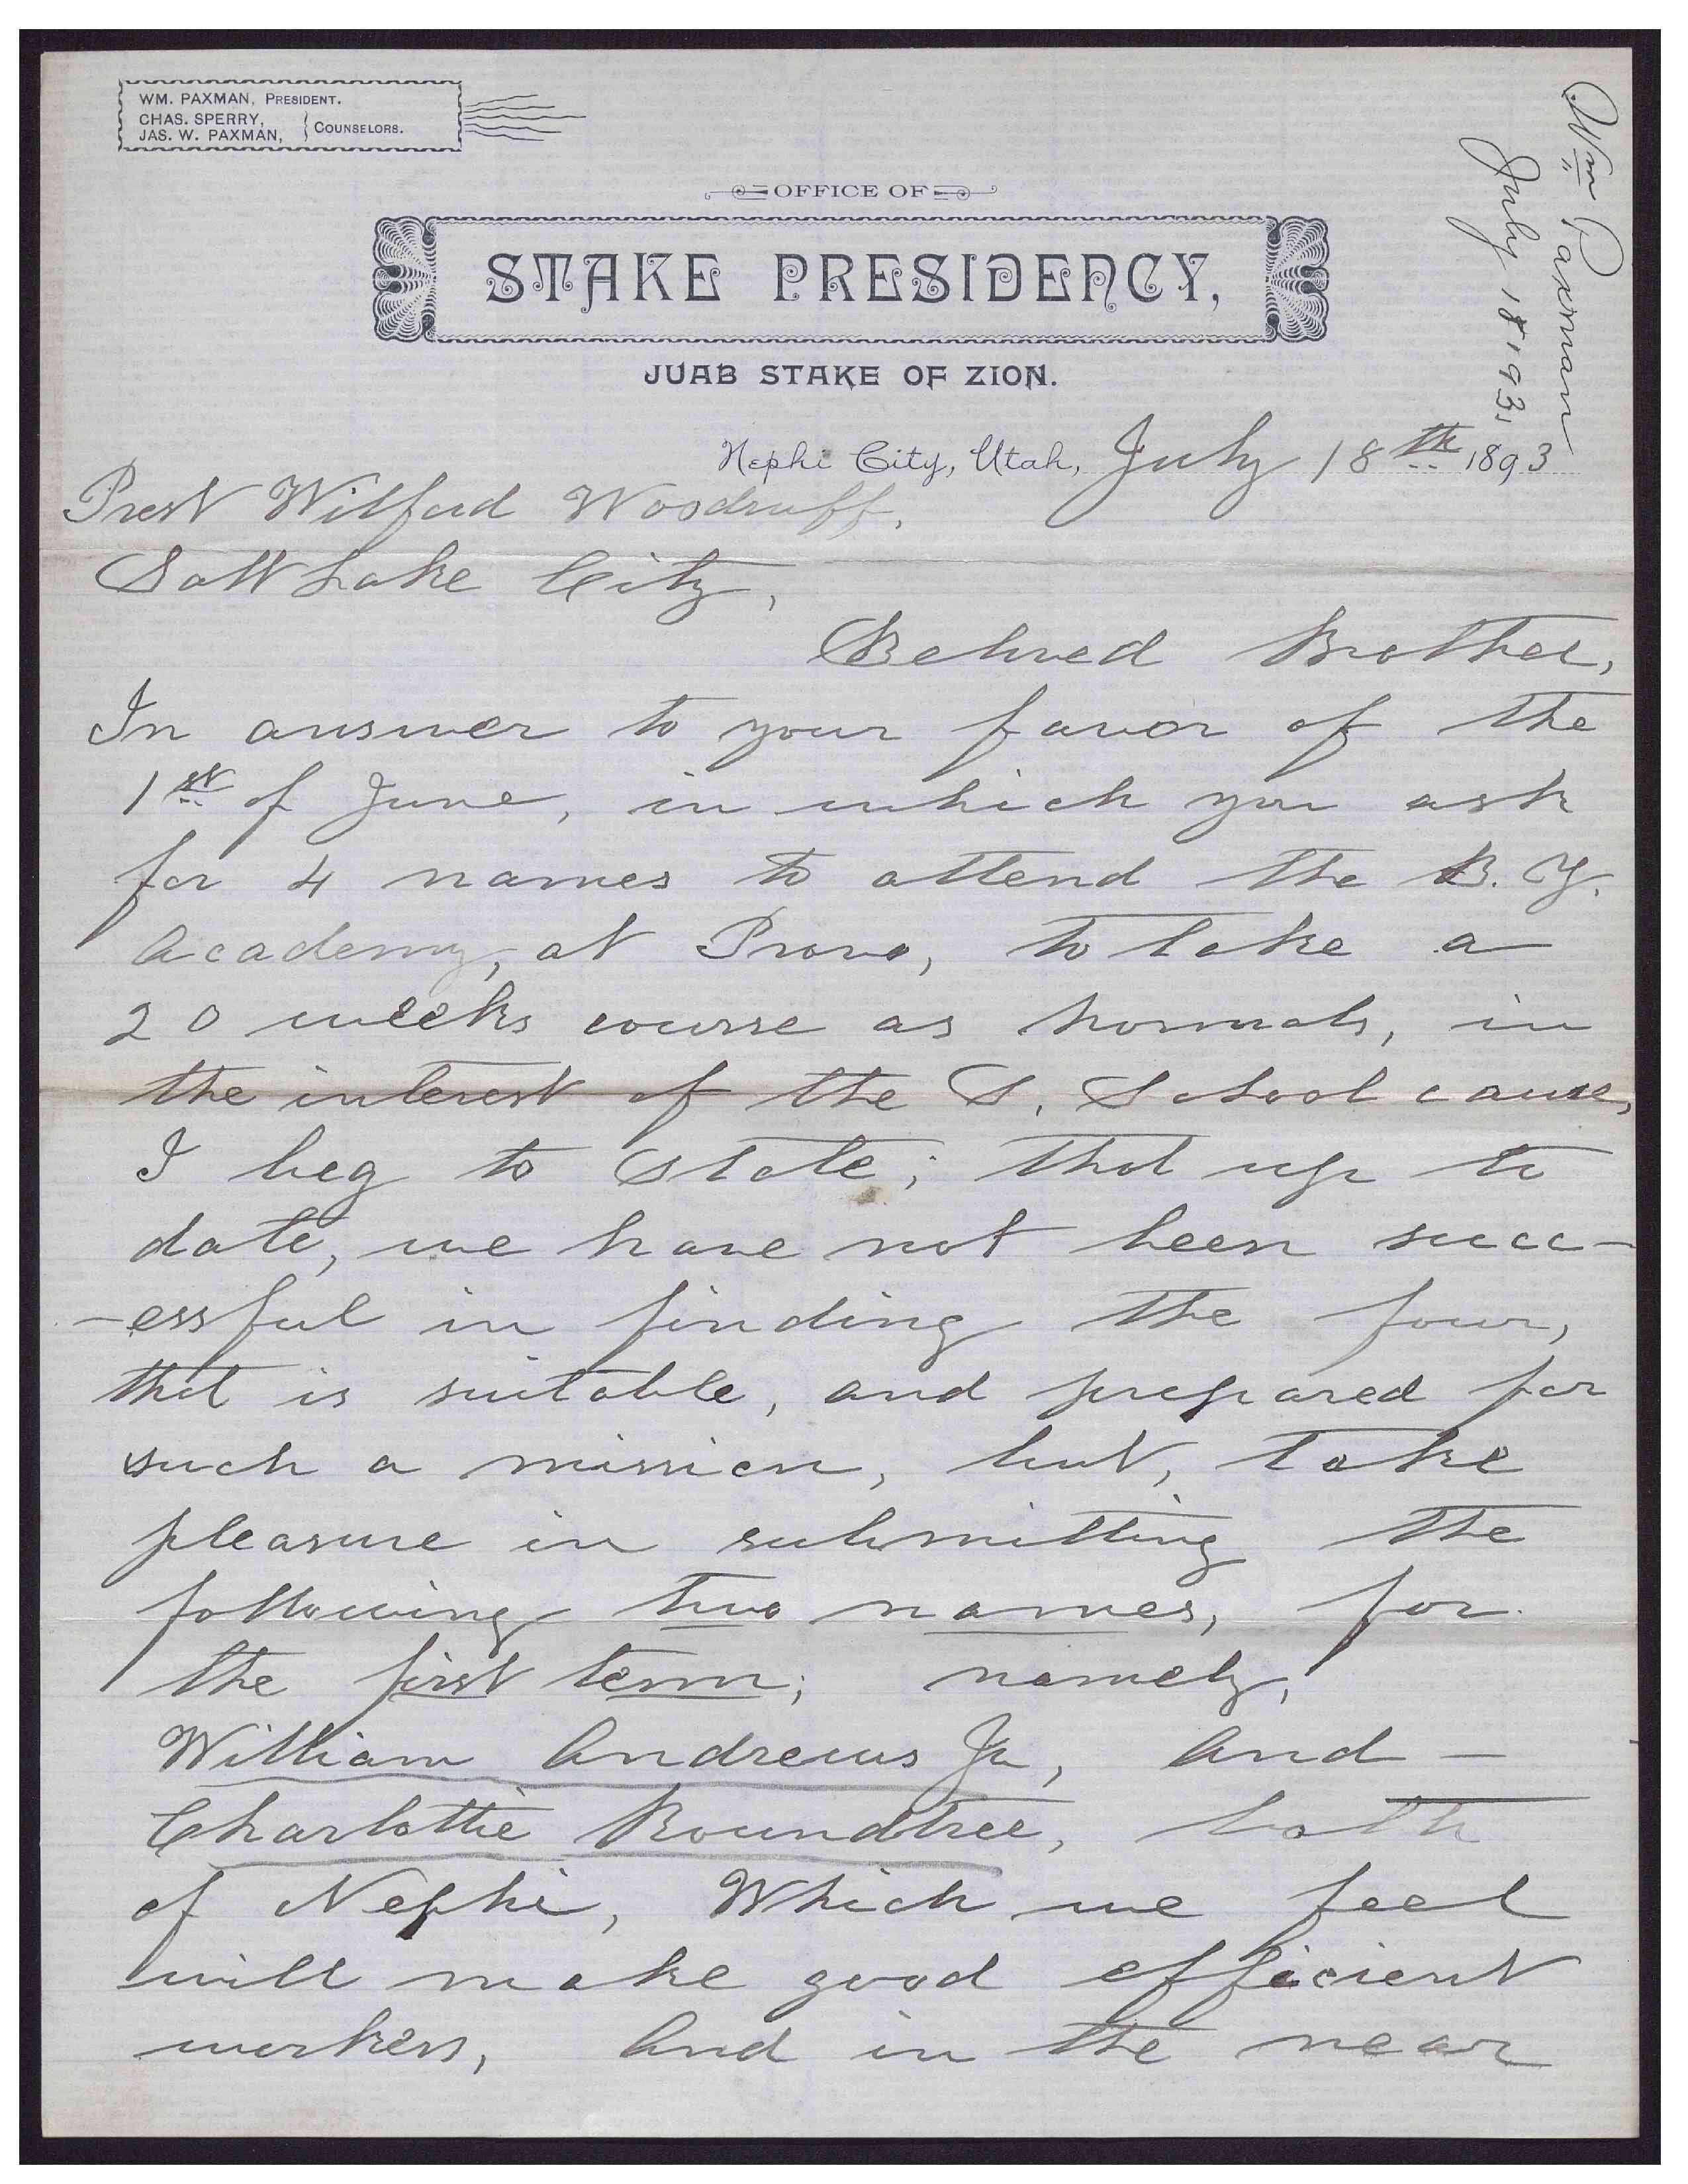 WM. PAXMAN, PRESIDENT.
CHAS. SPERRY,
JAS. W. PAXMAN, } COUNSELORS.
Wm Paxman
July 18, '93,
OFFICE OF
STAKE PRESIDENCY,
JUAB STAKE OF ZION.
Nephi City, Utah, July 18th 1893
Prest Wilford Woodruff,
Salt Lake City,
Beloved Brother,
In answer to your favor of the
1st of June, in which you ask
for 4 names to attend the B. Y.
Academy, at Provo, to take a
20 weeks course as Normals, in
the interest of the S. School cause,
I beg to state; that up to
date, we have not been succ-
-essful in finding the four,
that is suitable, and prepared for
such a mission, but, take
pleasure in submitting the
following two names, for
the first term; namely,
William Andrews Jr, and -
Charlottie Roundtree, both
of Nephi, Which we feel
will make good efficient
workers, And in the near